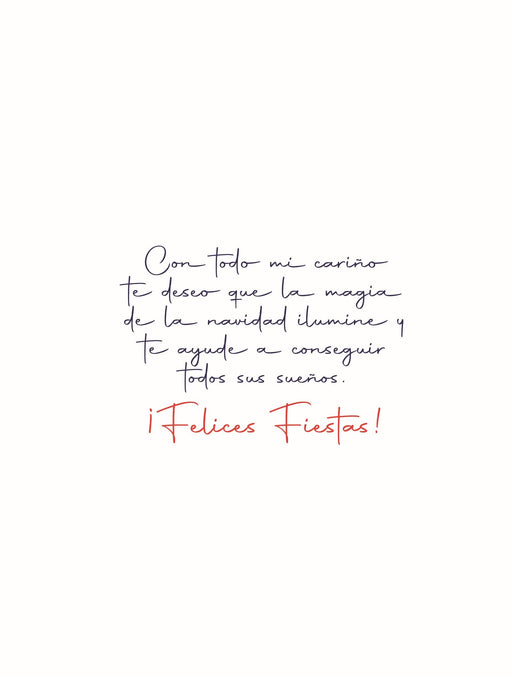 Con todo mi cariño
te deseo que la magia
de la navidad ilumine y
te ayude a conseguir
todos sus sueños.
¡Felices Fiestas!